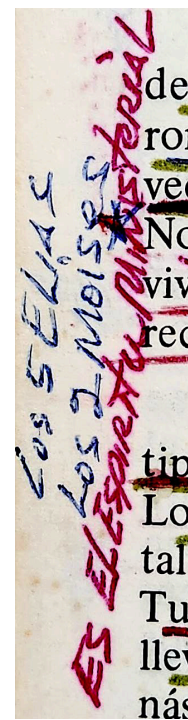 LOS 5 ELIAS
LOS 2 MOISES
ES EL ESPIRITU MINISTERIAL
de
ron
ve
No
viv
rec
tip
Lo
tal
Tu
llev
nás